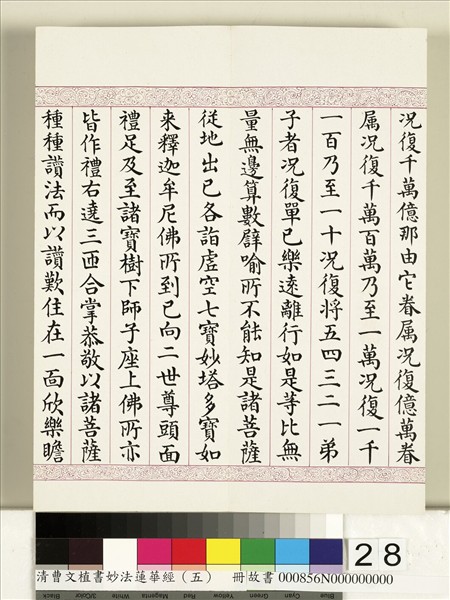 况復千萬億那由它眷属况復億萬眷
属况復千萬百萬乃至一萬况復一千
一百乃至一十况復将五四三二一弟
子者况復單已樂遠離行如是等比無
量無邊算數譬喻所不能知是諸菩薩
從地出已各詣虛空七寶妙塔多寶如
来釋迦牟尼佛所到已向二世尊頭面
禮足及至諸寶樹下師子座上佛所亦
皆作禮右遶三匝合掌恭敬以諸菩薩
種種讚法而以讚歎住在一面欣樂瞻
28
清曹文植書妙法蓮華經（五） 冊故書 000856N000000000
Black 3/Color White Magenta Red Yellow Green Cyan Blue